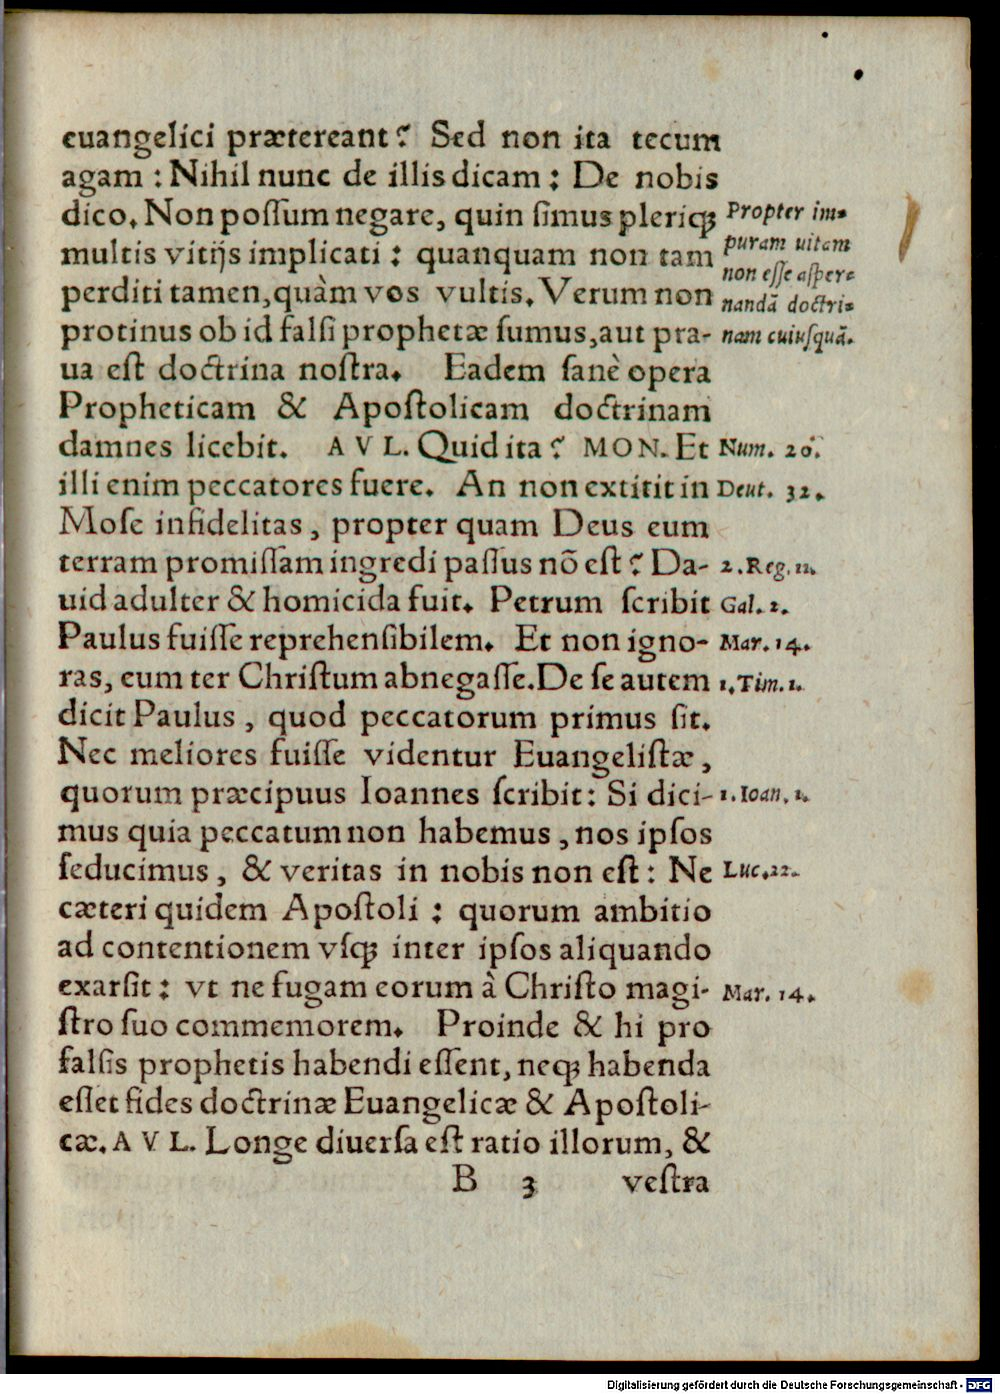 euangelici prætereant? Sed non ita tecum
agam : Nihil nunc de illis dicam : De nobis
dico. Non poſſum negare, quin ſimus pleriqꝫ
multis vitijs implicati : quanquam non tam
perditi tamen, quàm vos vultis. Verum non
protinus ob id falſi prophetæ ſumus, aut pra-
ua eſt doctrina noſtra. Eadem ſanè opera
Propheticam & Apoſtolicam doctrinam
damnes licebit. A V L. Quid ita? MON. Et
illi enim peccatores fuere. An non extitit in
Moſe infidelitas, propter quam Deus eum
terram promiſſam ingredi paſſus nõ eſt? Da-
uid adulter & homicida fuit. Petrum ſcribit
Paulus fuiſſe reprehenſibilem. Et non igno-
ras, eum ter Chriſtum abnegaſſe. De ſe autem
dicit Paulus, quod peccatorum primus ſit.
Nec meliores fuiſſe videntur Euangeliſtæ,
quorum præcipuus Ioannes ſcribit: Si dici-
mus quia peccatum non habemus, nos ipſos
ſeducimus, & veritas in nobis non eſt: Ne
cæteri quidem Apoſtoli : quorum ambitio
ad contentionem vſqꝫ inter ipſos aliquando
exarſit : vt ne fugam eorum à Chriſto magi-
ſtro ſuo commemorem. Proinde & hi pro
falſis prophetis habendi eſſent, neqꝫ habenda
eſſet fides doctrinæ Euangelicæ & Apoſtoli-
cæ. A V L. Longe diuerſa eſt ratio illorum, &
B 3 veſtra
Propter im-
puram uitam
non eſſe aſper-
nandã doctri-
nam cuiuſquã.
Num. 20.
Deut. 32.
2. Reg. 11.
Gal. 2.
Mar. 14.
1. Tim. 1.
1. Ioan. 1.
Luc. 22.
Mar. 14.
Digitalisierung gefördert durch die Deutsche Forschungsgemeinschaft - DFG